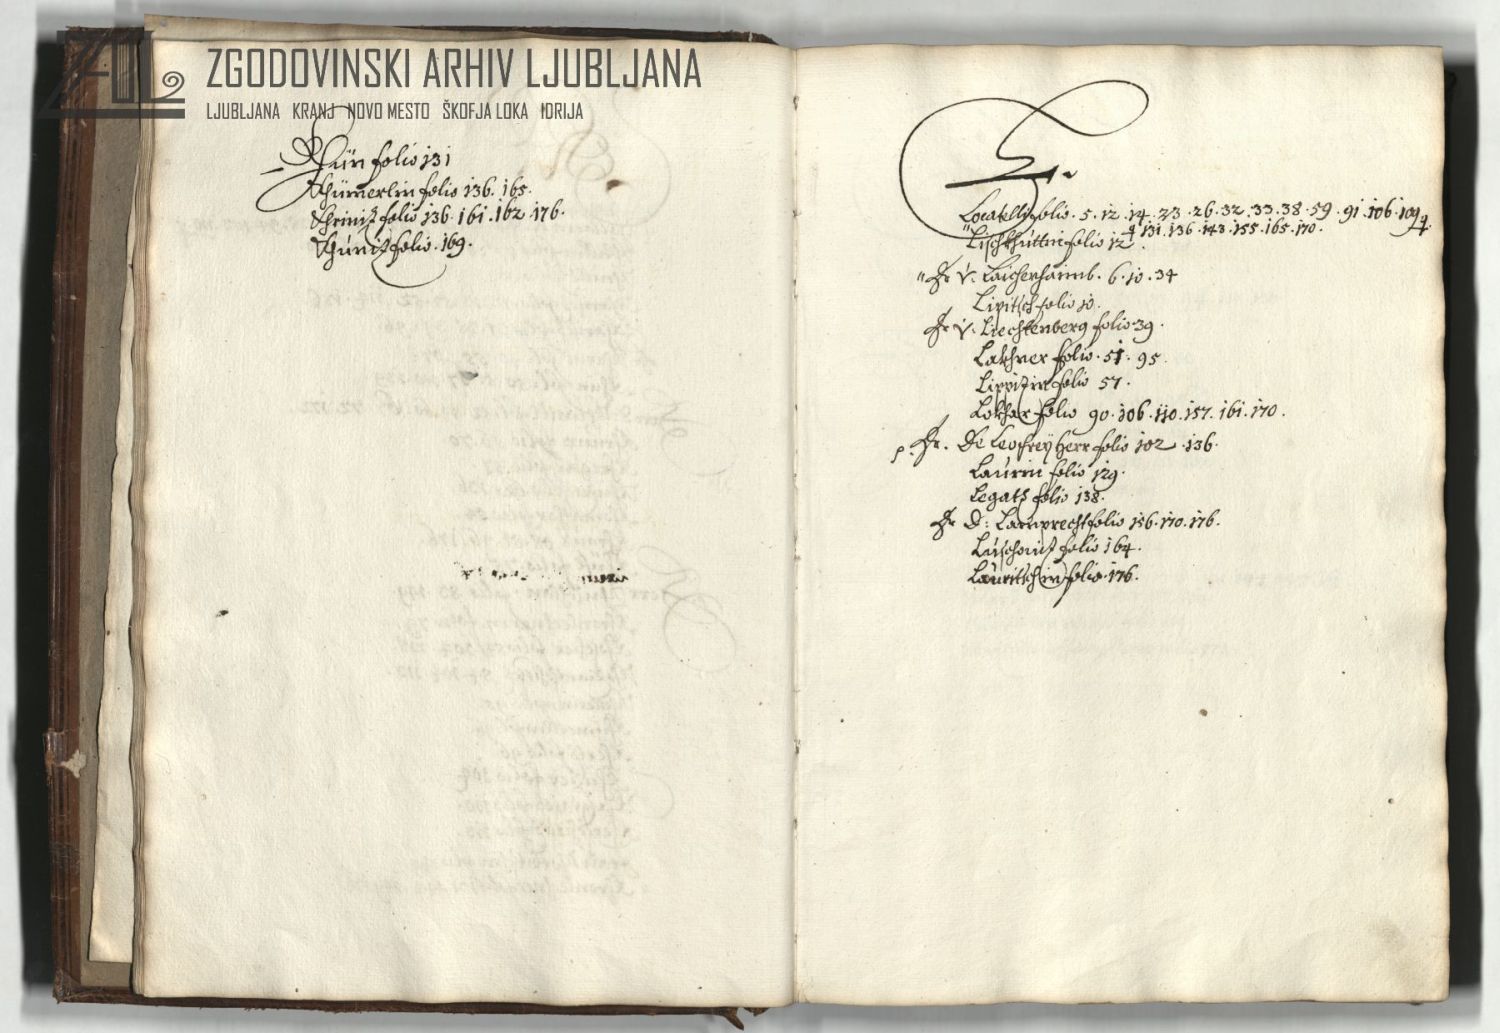 ZGODOVINSKI ARHIV LJUBLJANA
LJUBLJANA KRANJ NOVO MESTO ŠKOFJA LOKA IDRIJA
folio 131
Khümerlin folio 136. 165.
Khriniz folio 136. 161. 162. 176.
Khüniz folio. 169.
L.
Locatelli folio. 5. 12. 14. 23. 26. 32. 33. 38. 59. 91. 106. 109
131. 136. 143. 155. 165. 170.
Lischkhuttin folio 12
Hr. v. Laicherhaimb. 6. 10. 34
Lipitsch folio 10.
Hr. v. Liechtenberg folio 39.
Lakhner folio. 51. 95.
Lippizin folio 57.
Lokhar folio 90. 106. 110. 157. 161. 170.
Hr. De Leofreÿ Herr folio 102. 136.
Laurin folio 129.
Legats folio 138.
Hr. D: Lamprecht folio 156. 170. 176.
Luschoniz folio 164.
Lauritschin folio. 176.